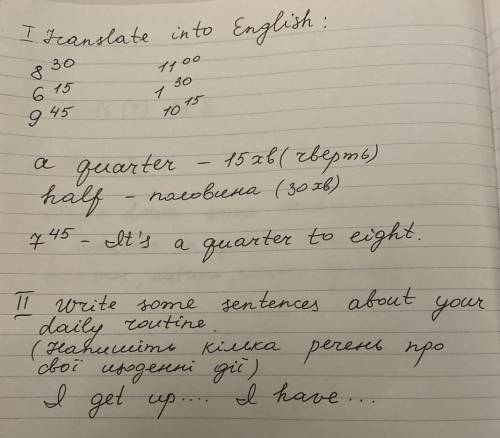 I Translate into English:
8 30 11 00
6 15 1 30
9 45 10 15
a quarter – 15 хв (чверть)
half – половина (30 хв)
7 45 – It's a quarter to eight.
II Write some sentences about your
daily routine.
(Напишіть кілька речень про
свої щоденні дії)
I get up.... I have ...